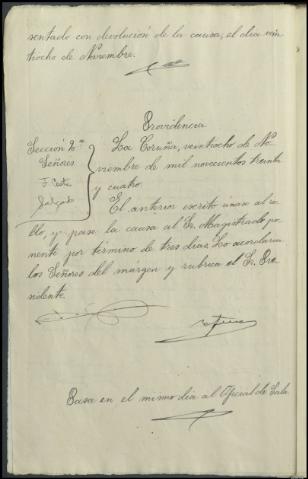 sentado con devolución de la causa, el dia vein
tiocho de Noviembre.
Providencia
Sección 2ª
Señores
Salgado
La Coruña, veintiocho de No-
viembre de mil novecientos treinta
y cuatro.
El anterior escrito únase al ro-
llo, y pase la causa al Sr. Magistrado po-
nente por término de tres dias. Lo acordaron
los Señores del margen y rubrica el Sr. Pre-
sidente.
Pasa en el mismo dia al Oficial de Sala.